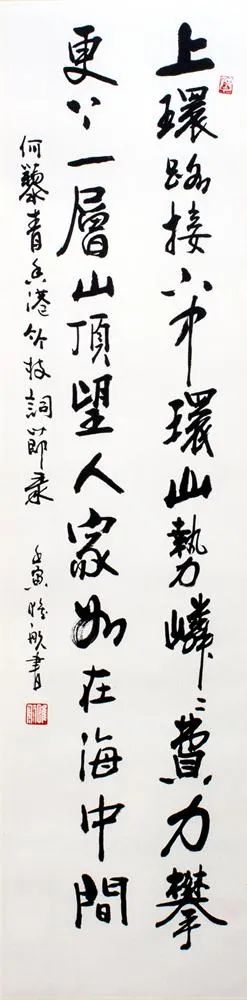 上環路接下中環山勢嶙〻費力攀
更上一層山頂望人家如在海中間
何藜青香港竹枝詞節录 壬寅 航書